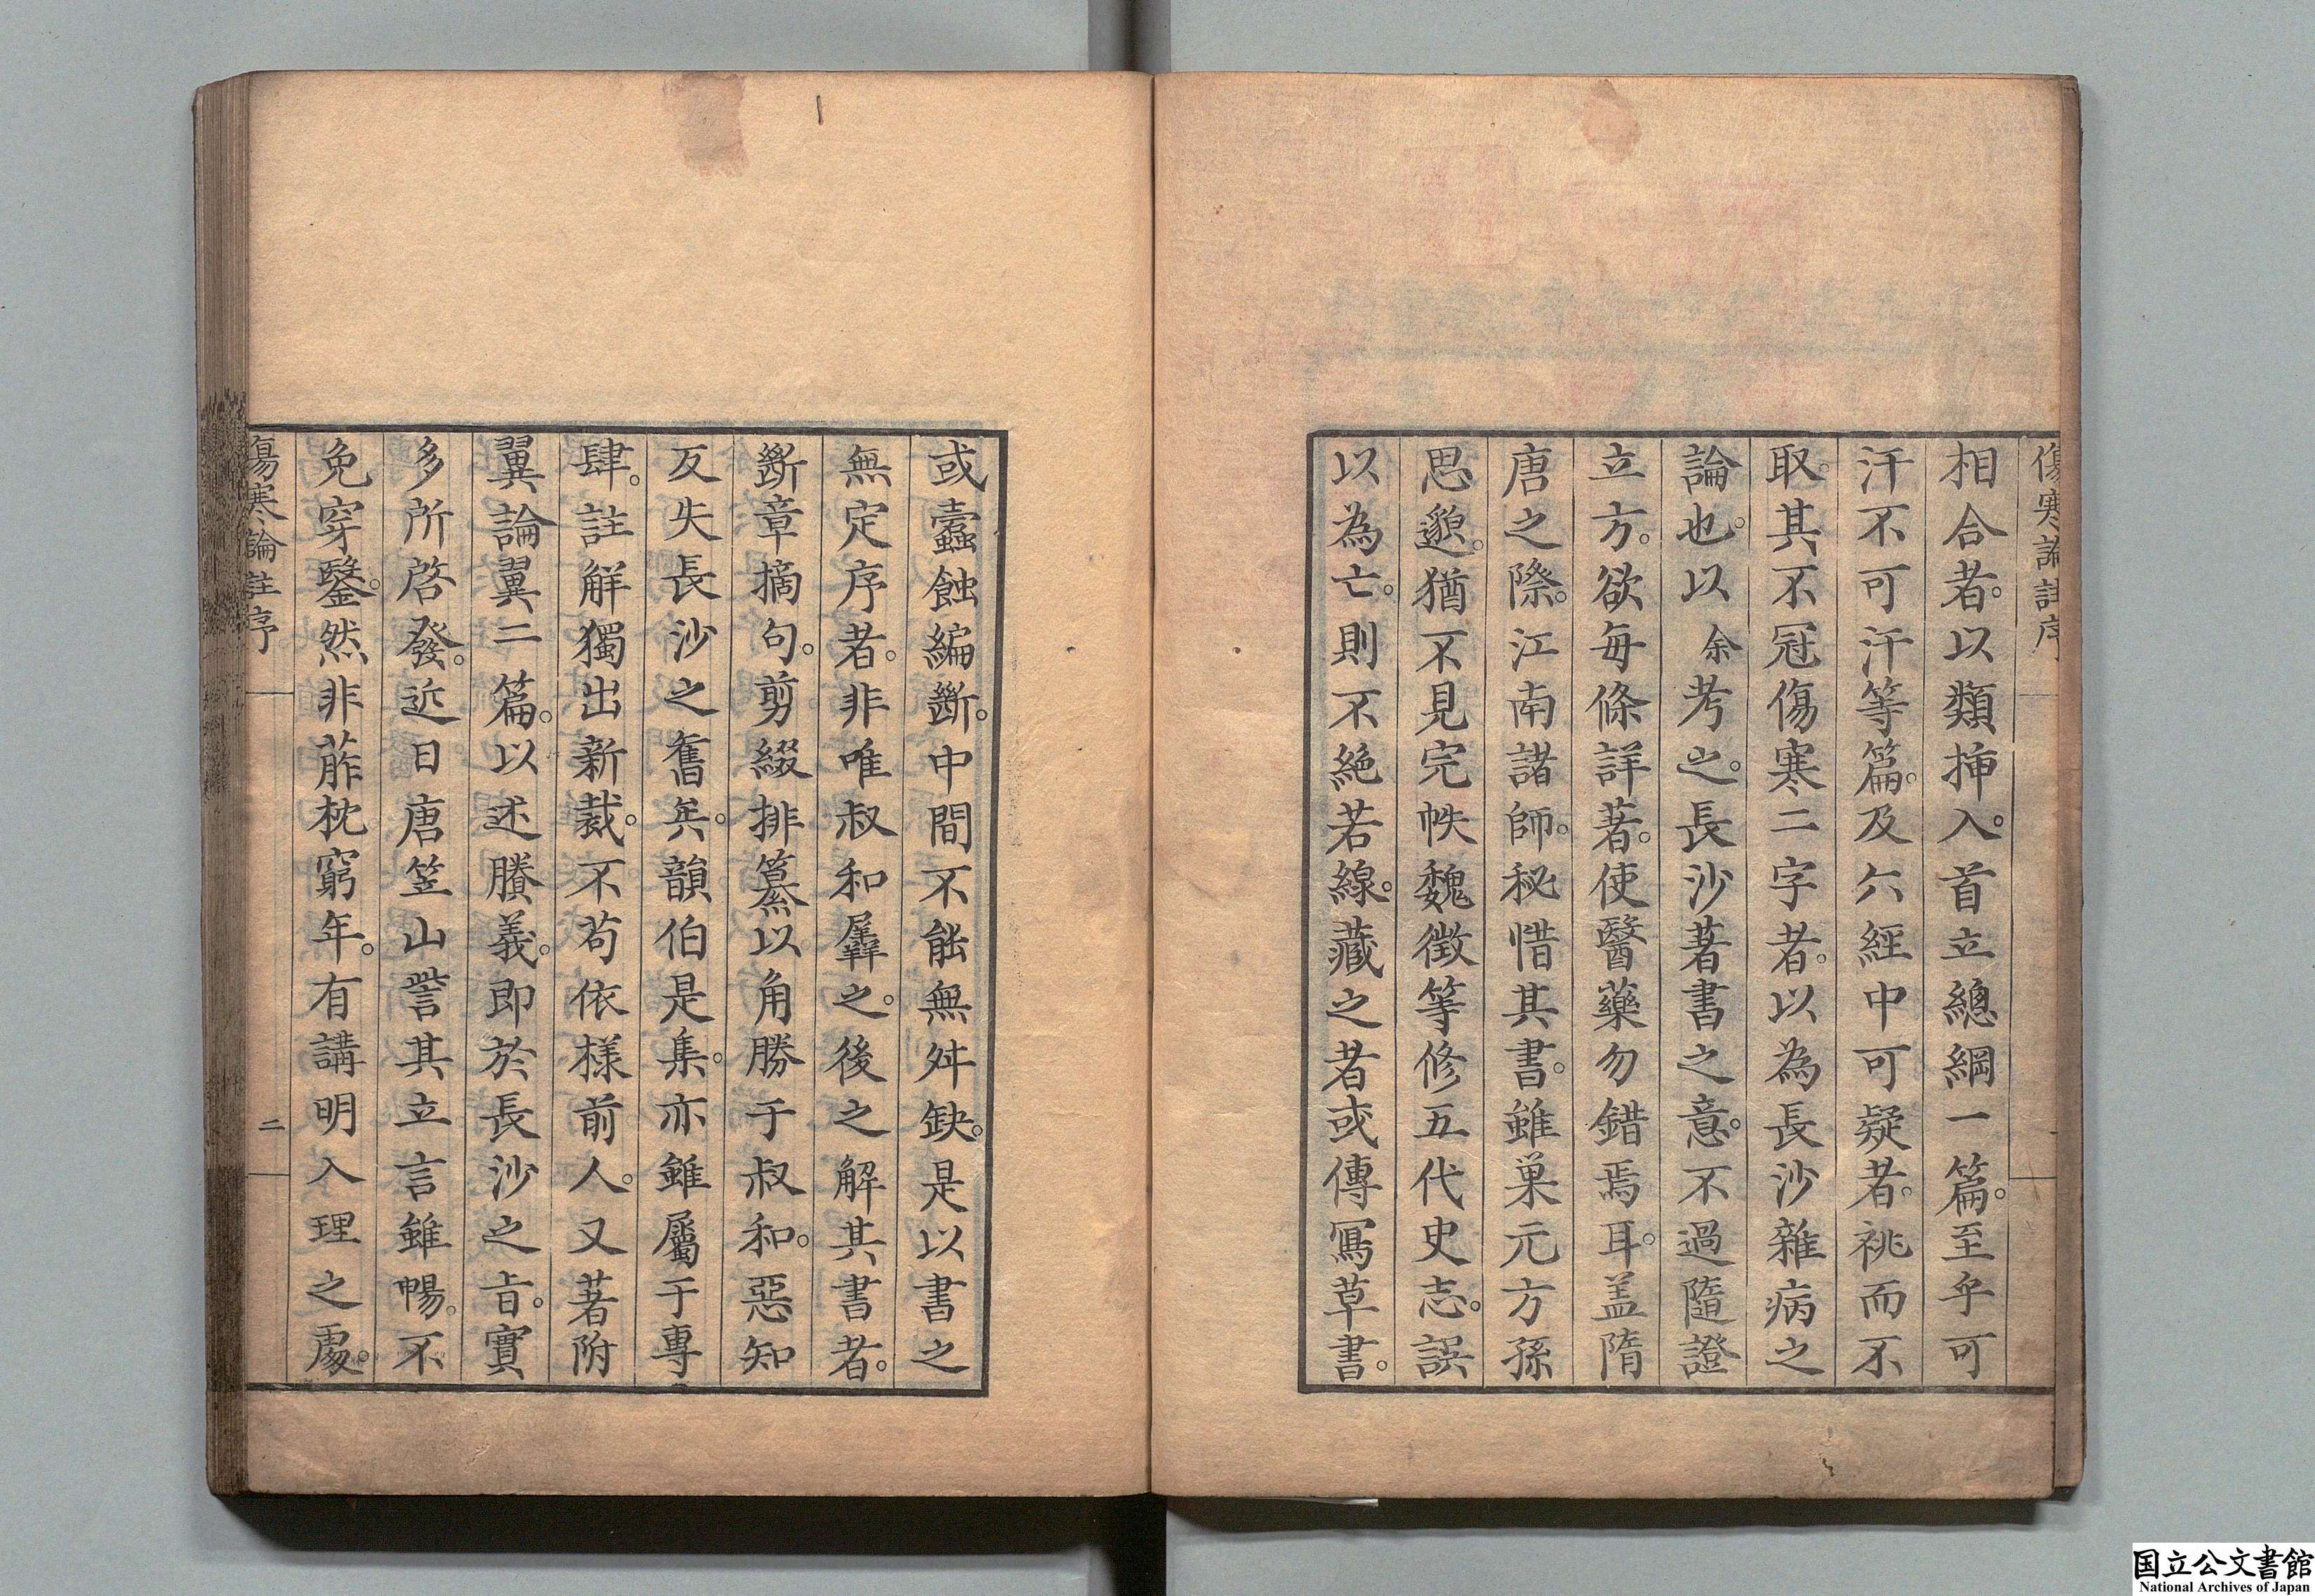 傷寒論註序
相合者。以類揷入。首立總綱一篇。至乎可
汗不可汗等篇。及六經中可疑者。祧而不
取。其不冠傷寒二字者。以為長沙雜病之
論也。以余考之。長沙著書之意。不過隨證
立方。欲每條詳著。使醫藥勿錯焉耳。盖隋
唐之際。江南諸師。秘惜其書。雖巢元方孫
思邈。猶不見完帙魏徵等修五代史志。誤
以為亡。則不絕若線。藏之者或傳寫草書。
或蠹蝕編斷。中間不能無舛缺。是以書之
無定序者。非唯叔和羼之。後之解其書者。
斷章摘句。剪綴排纂以角勝于叔和。惡知
反失長沙之舊矣。韻伯是集。亦雖屬于專
肆。註解獨出新裁。不苟依樣前人。又著附
翼論翼二篇。以述賸義。即於長沙之旨。實
多所啓發。近日唐笠山訾其立言雖暢。不
免穿鑿。然非葄枕窮年。有講明入理之處。
傷寒論註序
二
国立公文書館
National Archives of Japan